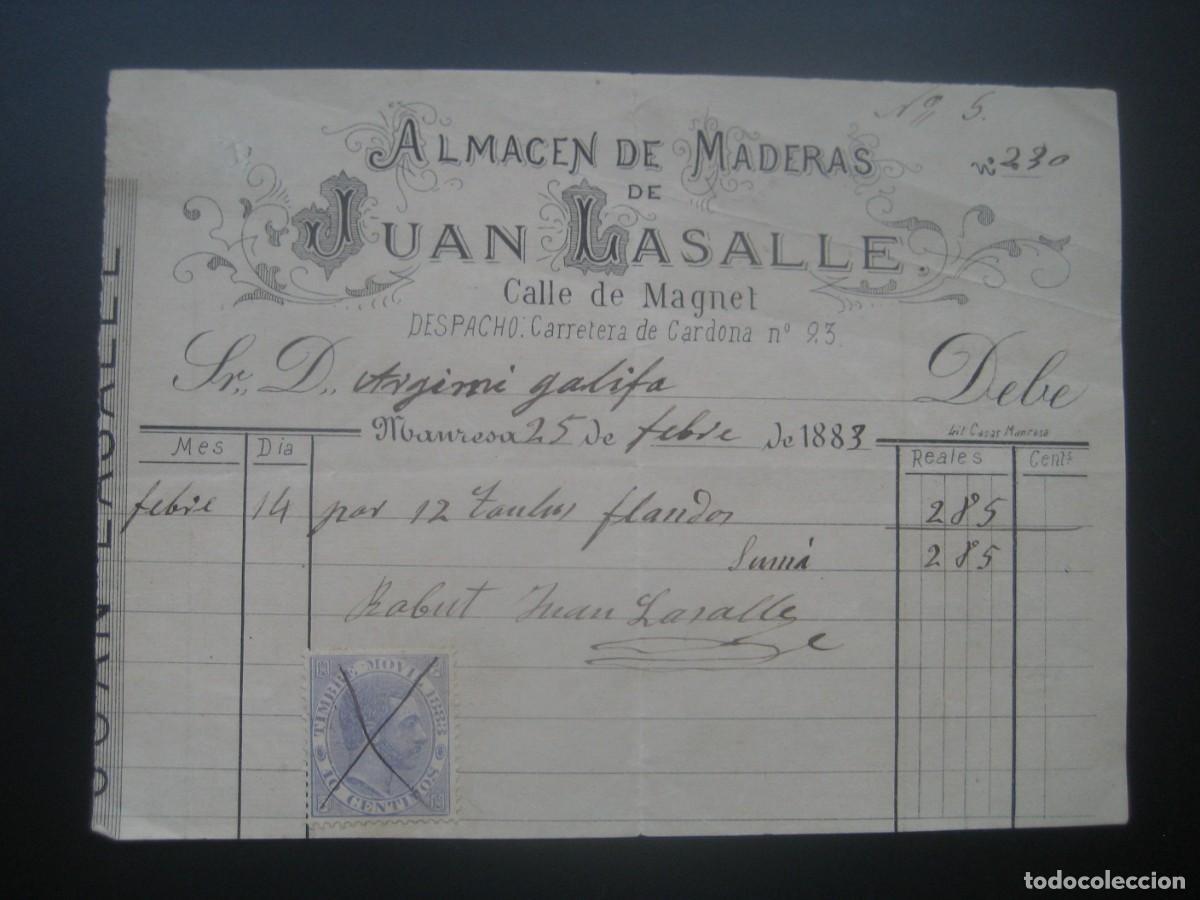 Nº 5.
ALMACEN DE MADERAS
nº 230
DE
JUAN LASALLE.
Calle de Magnet
DESPACHO: Carretera de Cardona nº 93.
Sr. D. Argimi galifa
Debe
Manresa 25 de febre de 1883
Lit Casas Manresa
Mes Dia Reales Cents
febre 14 por 12 taulus flandos 285
Sumá 285
Rabut Juan Lasalle
TIMBRE MOVIL 1883
10 CENTIMOS
JUAN LASALLE
todocoleccion